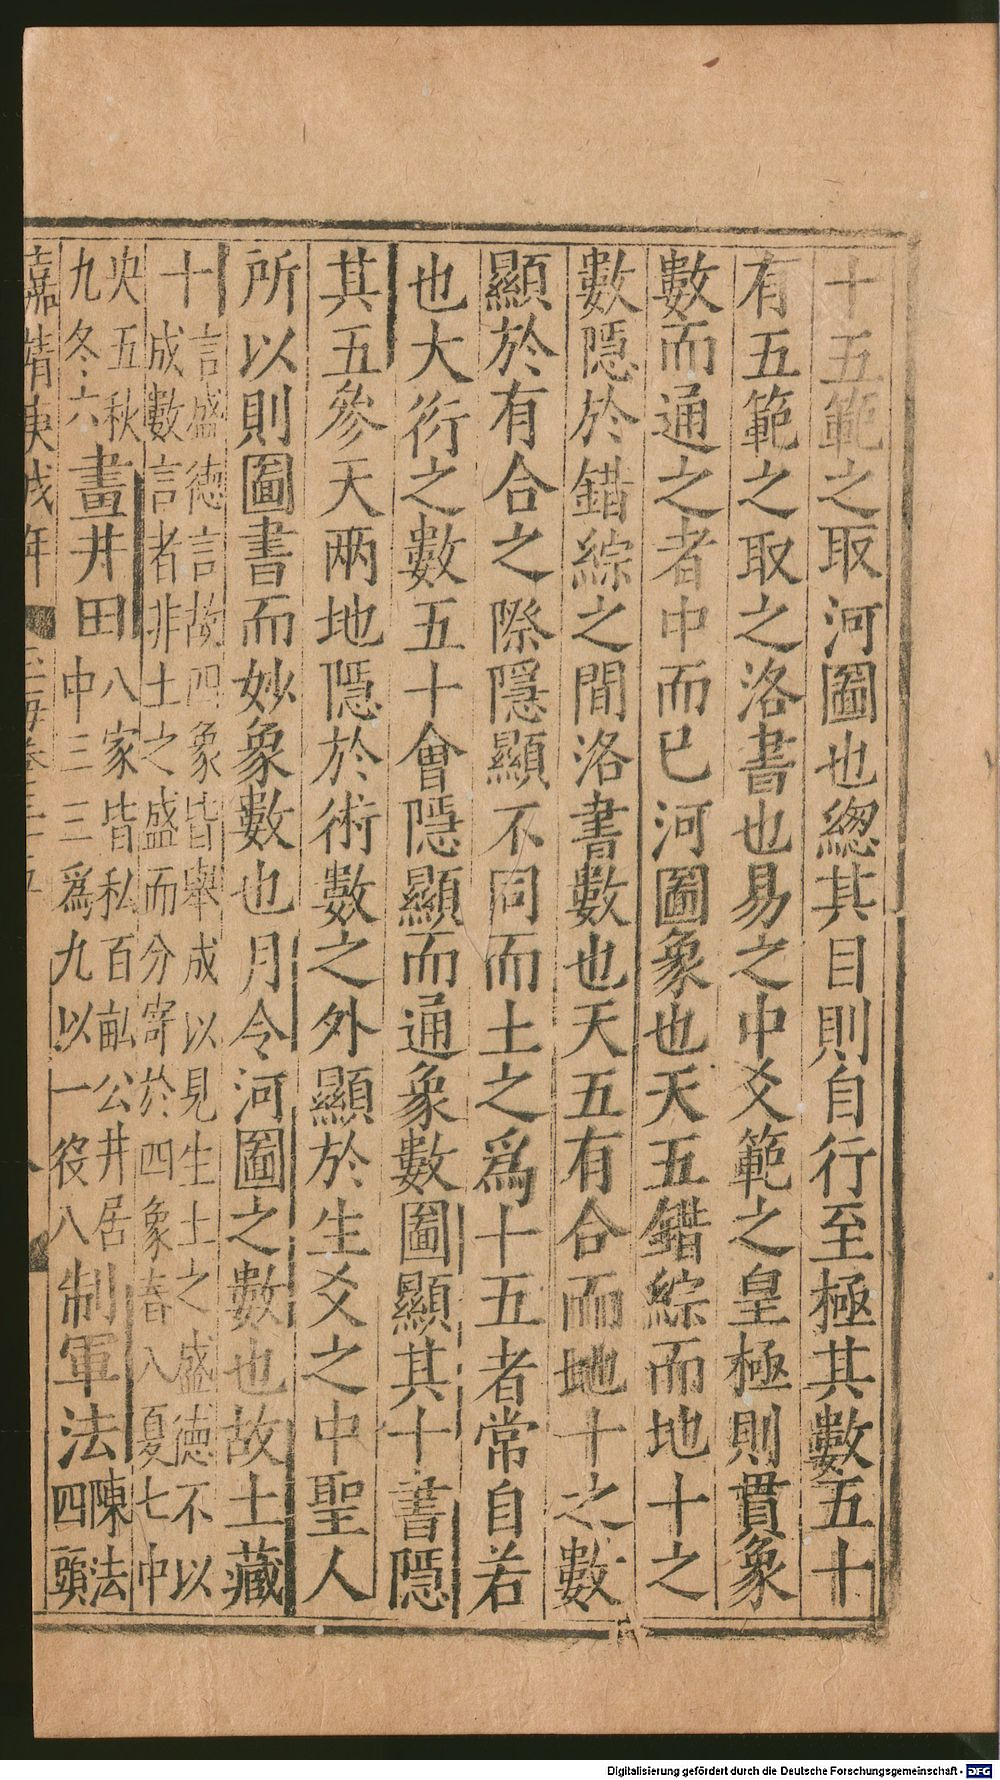 十五範之取河圖也緫其目則自行至極其數五十
有五範之取之洛書也易之中爻範之皇極則貫象
數而通之者中而已河圖象也天五錯綜而地十之
數隱於錯綜之間洛書數也天五有合而地十之數
顯於有合之際隱顯不同而土之爲十五者常自若
也大衍之數五十會隱顯而通象數圖顯其十書隱
其五參天兩地隱於術數之外顯於生爻之中聖人
所以則圖書而妙象數也月令河圖之數也故土藏
十言盛德言故四象皆舉成以見生土之盛德不以
成數言者非土之盛而分寄於四象春八夏七中
央五秋
九冬六畫井田八家皆私百畝公井居
中三三爲九以一役八制軍法陳法
四頭
嘉靖庚戌年 玉海卷三十五
Digitalisierung gefördert durch die Deutsche Forschungsgemeinschaft - DFG